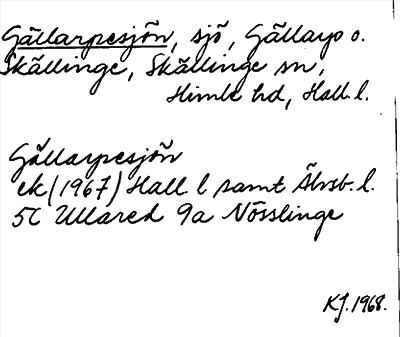 Gällarpesjön, sjö, Gällarp o.
Skällinge, Skällinge sn,
Himle hd, Hall. l.
Gällarpesjön
ek (1967) Hall l samt Älvsb. l.
5C Ullared 9a Nösslinge
KJ. 1968.